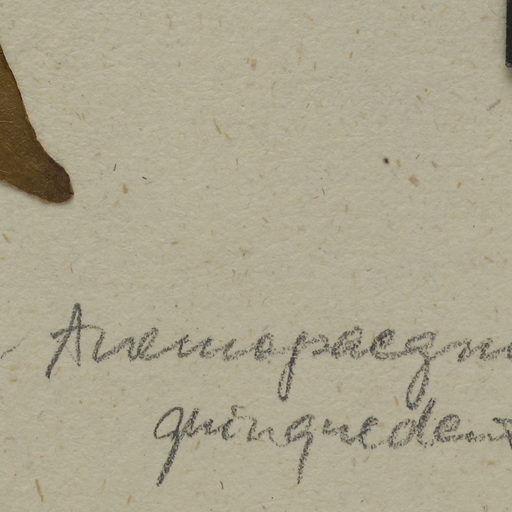 Anemopaegm
quinquedent